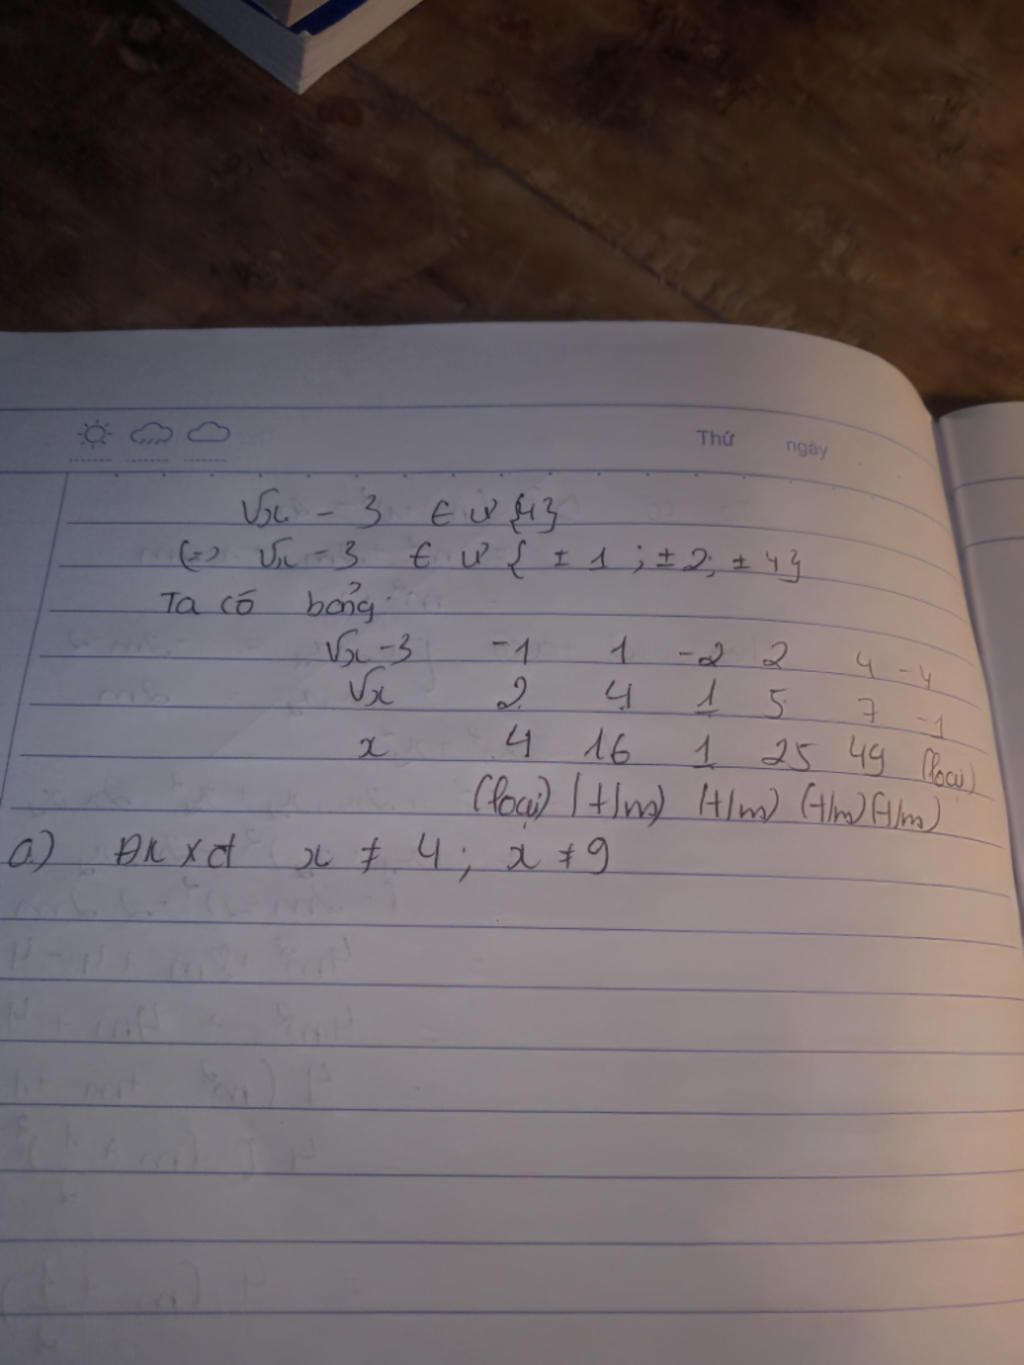 Thứ ngày
√x - 3 ∈ Ư {4}
(=) √x - 3 ∈ Ư { ± 1 ; ± 2; ± 4}
Ta có bảng
√x - 3 -1 1 -2 2 4 -4
√x 2 4 1 5 7 -1
x 4 16 1 25 49 (loại)
(loại) (t/m) (t/m) (t/m) (t/m)
a) ĐK xđ x ≠ 4 ; x ≠ 9